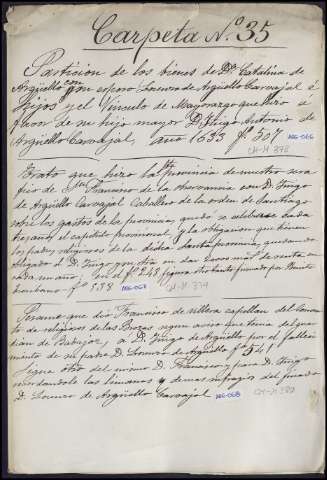 Carpeta Nº 35
Particion de los bienes de Dª Catalina de
Argüello con su esposo Lorenzo de Argüello Carvajal é
hijos y el Vinculo de Mayorazgo que hizo á
favor de su hijo mayor D. Diego Antonio de
Argüello Carvajal, año 1635 fº 507 106-066
CH-H 378
Trato que hizo la provincia de nuestro será
fico de Sn Francisco de la observancia con D. Diego
de Argüello Carvajal Caballero de la orden de Santiago
sobre los gastos de la provincia, quando se celebrase cada
el capitulo provincial, y la obligacion que tienen
los padres religiosos de la dicha Santa provincia, quedando
obligado el D. Diego
cada un año; en el fº 248 figura
fº 538 106-067 CH-H 379
Pesame que dió Francisco de Villera capellan del Conven
to de religiosas de las Brozas segun aviso que tenia del guar
dian de Badajoz, á D. Diego de Argüello por el falleci
miento de su padre D. Lorenzo de Argüello fº 541
Sigue otro del mismo D. Francisco para D. Diego
las limosnas y demas sufragios del finado
D. Lorenzo de Argüello Carvajal 106-068 CH-H 380